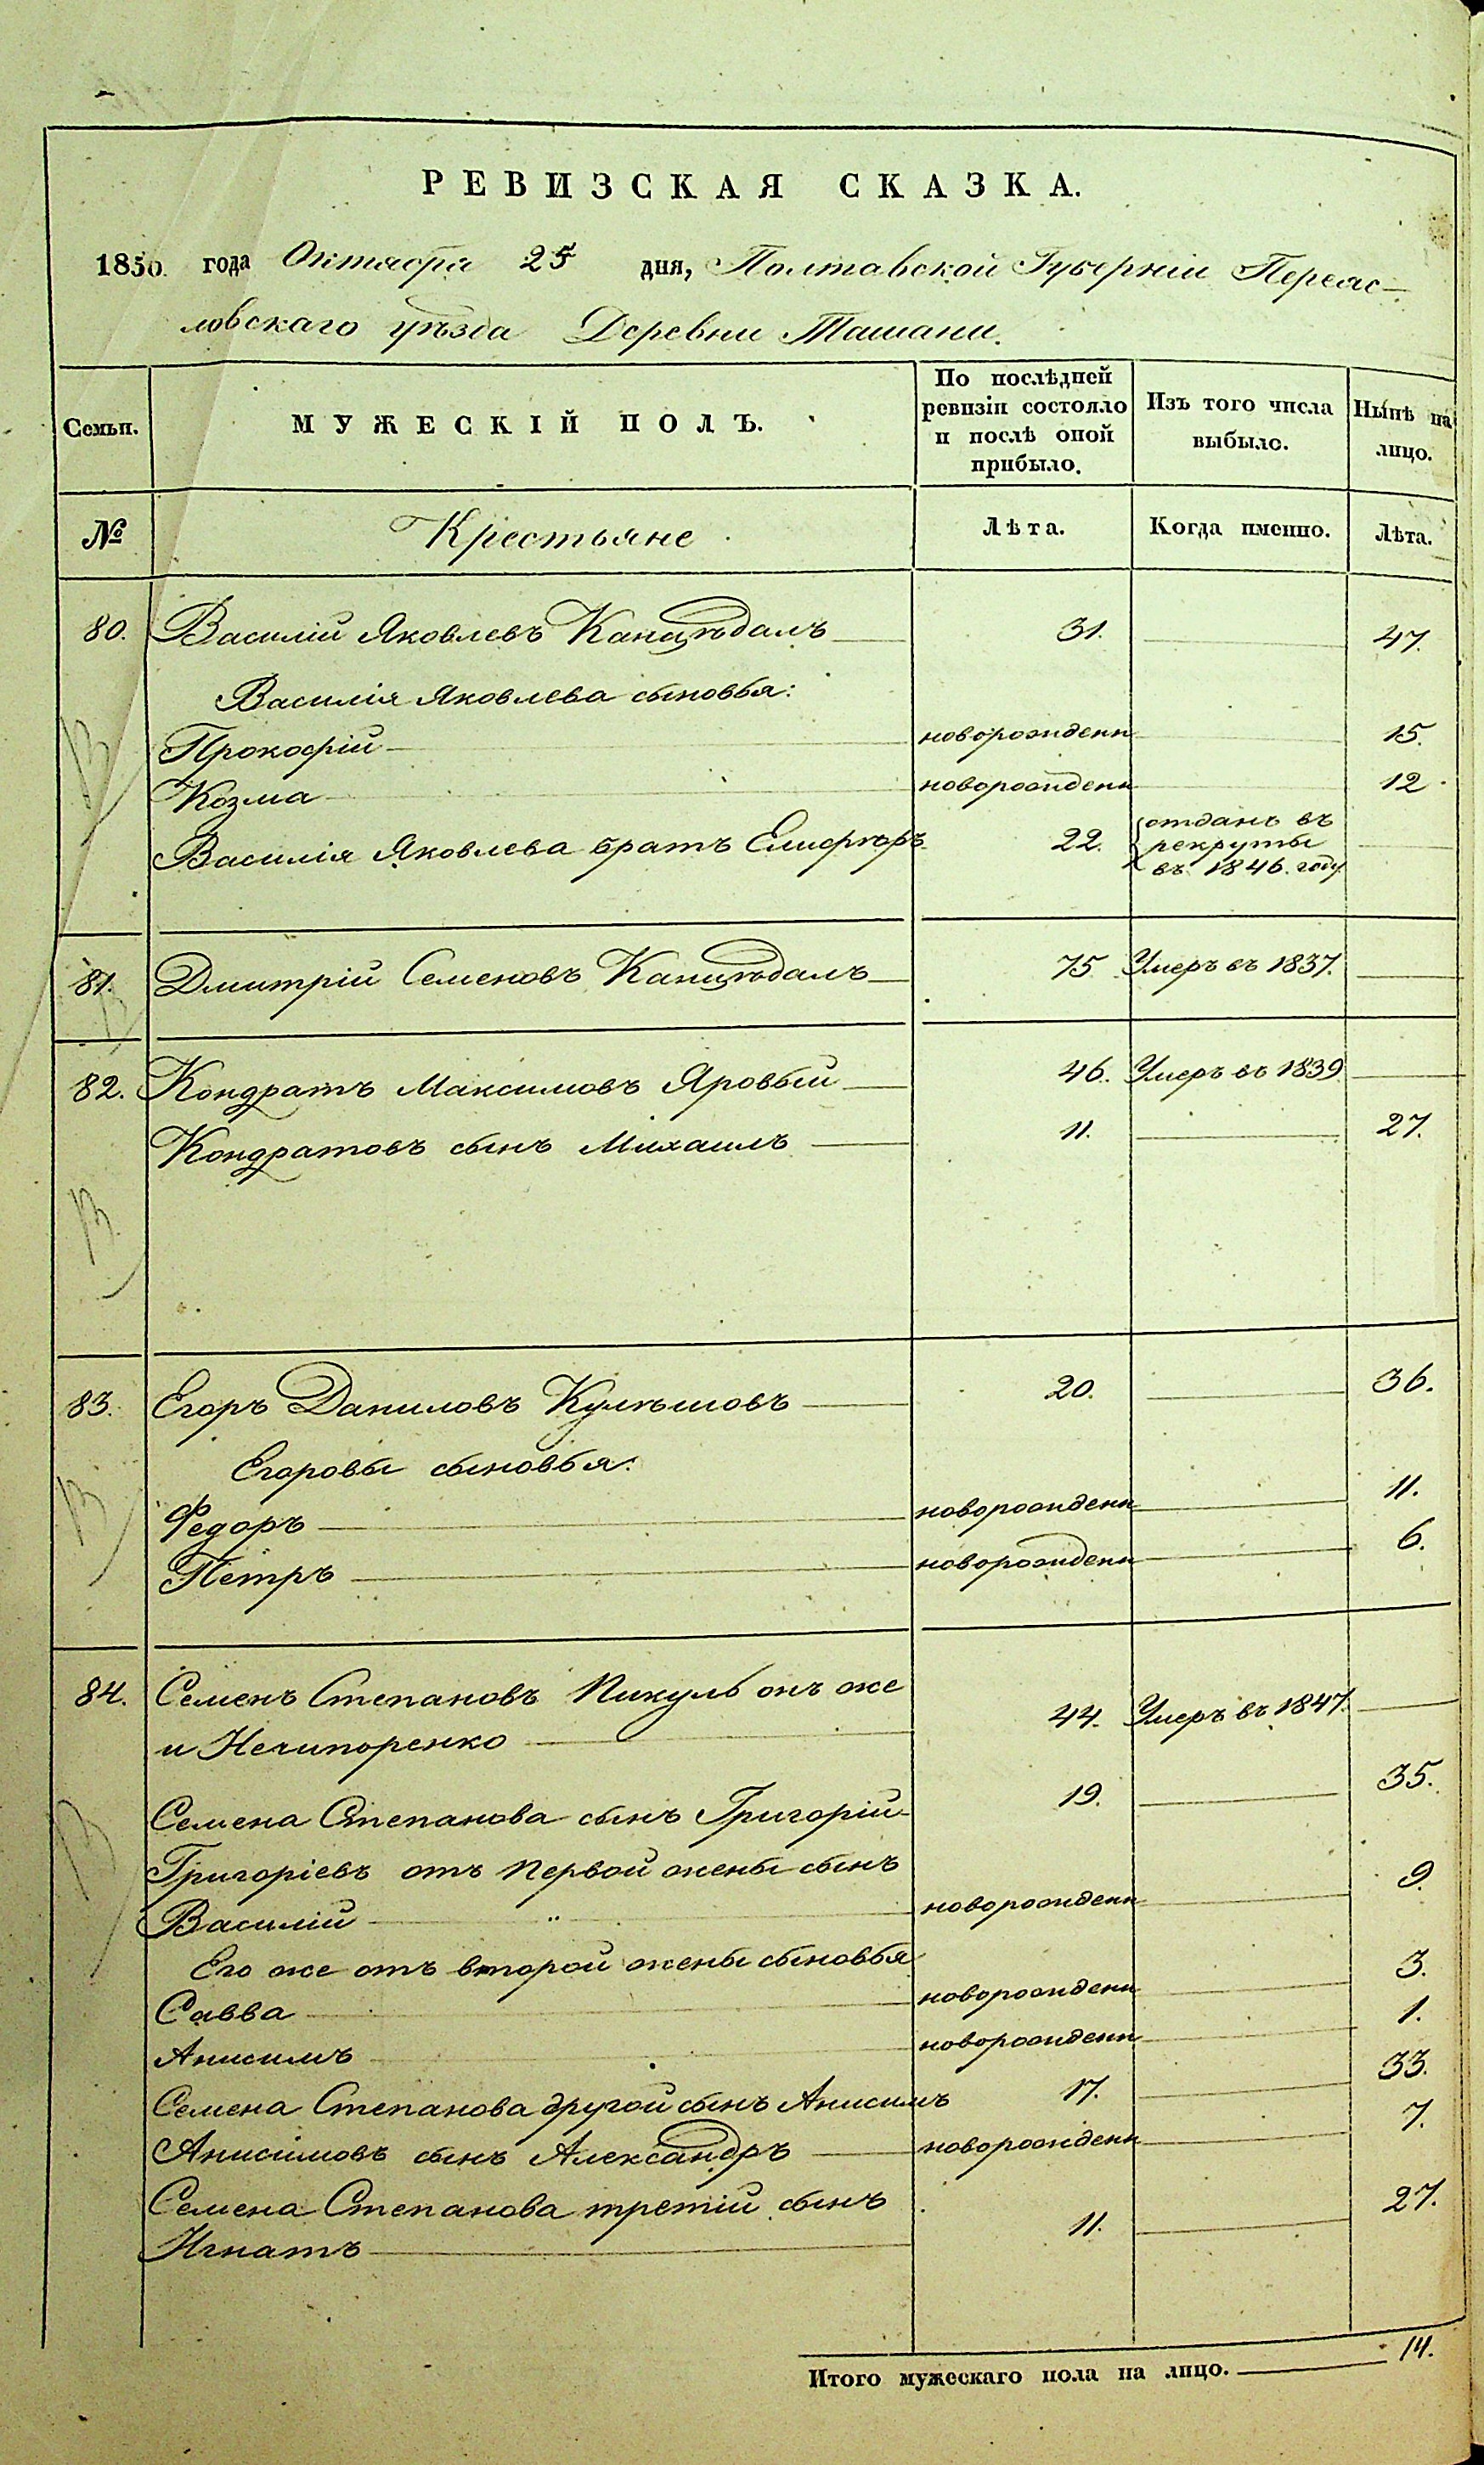 РЕВИЗСКАЯ СКАЗКА.
1850. года Октября 25 дня, Полтавской Губерніи Переяс-
ловскаго уѣзда Деревни Ташани.
Семьи.
МУЖЕСКІЙ ПОЛЪ.
По послѣдней
ревизіи состояло
и послѣ оной
прибыло.
Изъ того числа
выбыло.
Нынѣ на
лицо.
№
Крестьяне
Лѣта.
Когда именно.
Лѣта.
80. Василій Яковлевъ Канцѣдалъ 31. 47.
Василія Яковлева сыновья:
Прокофій новорожденн 15.
Козма новорожденн 12
Василія Яковлева братъ Елифѣръ 22. отданъ въ
рекруты
въ 1846. году
81. Дмитрій Семеновъ Канцѣдалъ 75 Умеръ въ 1837.
82. Кондратъ Максимовъ Яровый 46. Умеръ въ 1839
Кондратовъ сынъ Михаилъ 11. 27.
83. Егоръ Даниловъ Кулѣшовъ 20. 36.
Егоровы сыновья:
Федоръ новорожденн 11.
Петръ новорожденн 6.
84. Семенъ Степановъ Пикуль онъ же
и Нечипоренко 44. Умеръ въ 1847.
Семена Степанова сынъ Григорій 19. 35.
Григоріевъ отъ первой жены сынъ
Василій новорожденн 9.
Его же отъ второй жены сыновья
Савва новорожденн 3.
Анисимъ новорожденн 1.
Семена Степанова другой сынъ Анисимъ 17. 33.
Анисимовъ сынъ Александръ новорожденн 7.
Семена Степанова третій сынъ
Игнатъ 11. 27.
Итого мужескаго пола на лицо. 14.